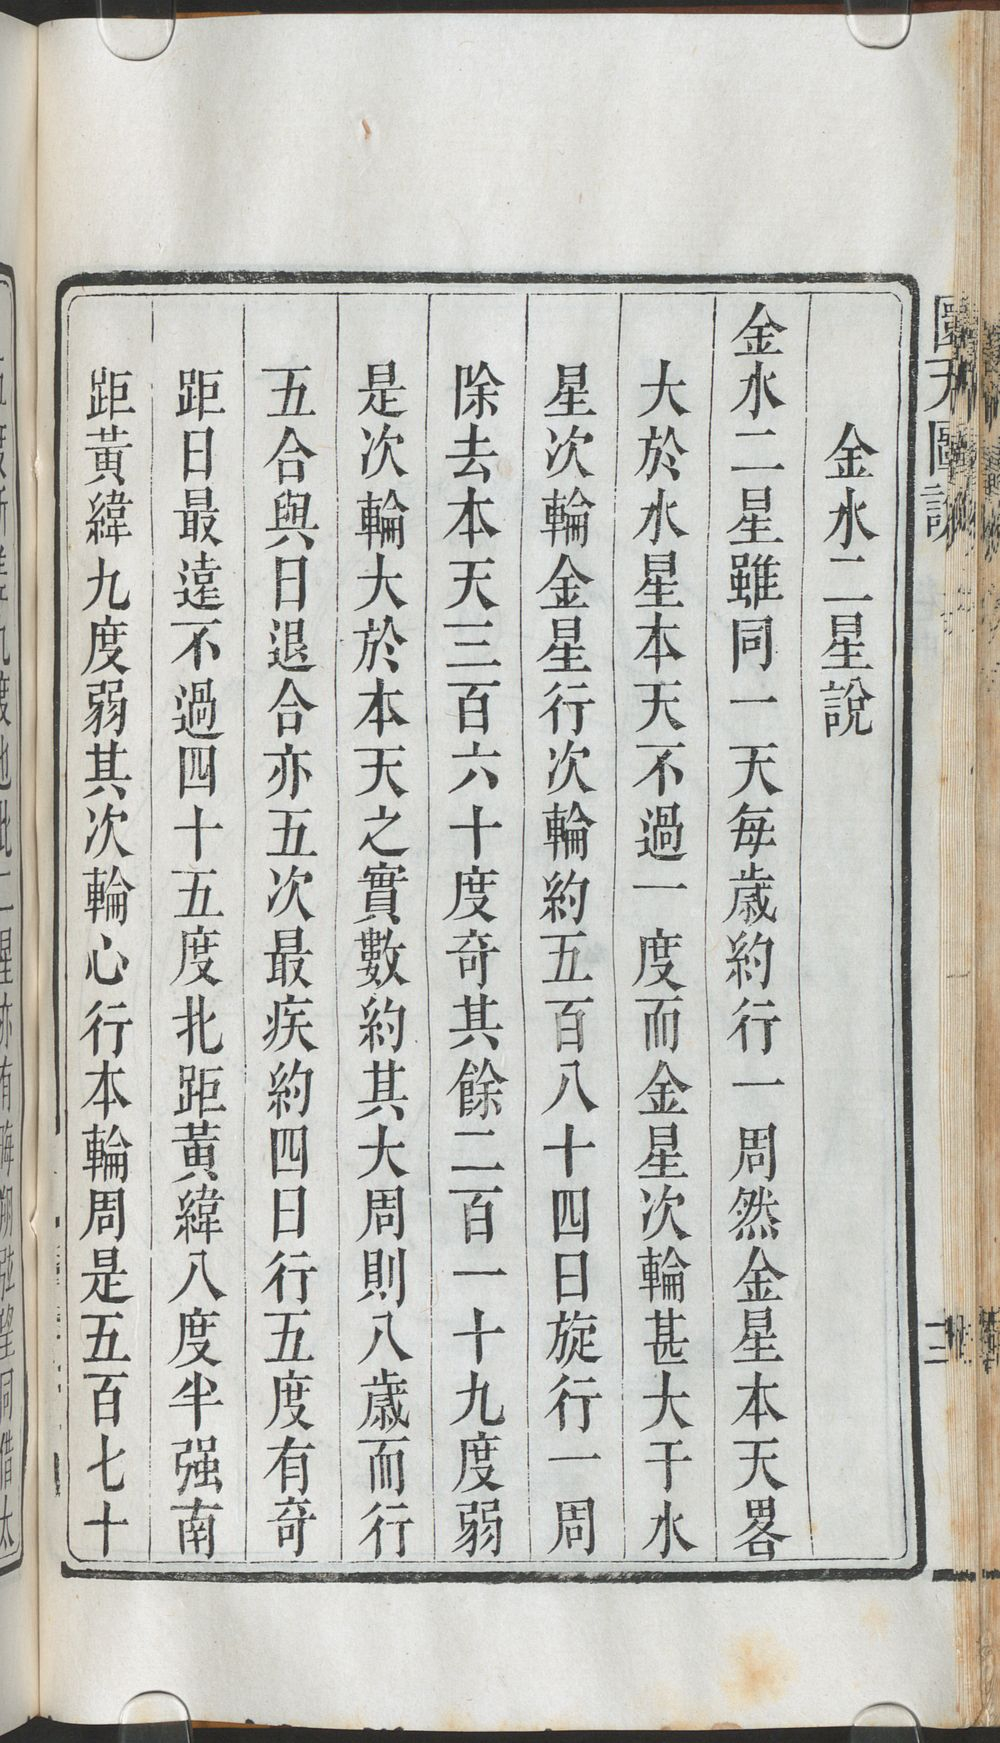 金水二星說
金水二星雖同一天每歲約行一周然金星本天畧
大於水星本天不過一度而金星次輪甚大于水
星次輪金星行次輪約五百八十四日旋行一周
除去本天三百六十度奇其餘二百一十九度弱
是次輪大於本天之實數約其大周則八歲而行
五合與日退合亦五次最疾約四日行五度有奇
距日最遠不過四十五度北距黃緯八度半强南
距黃緯九度弱其次輪心行本輪周是五百七十